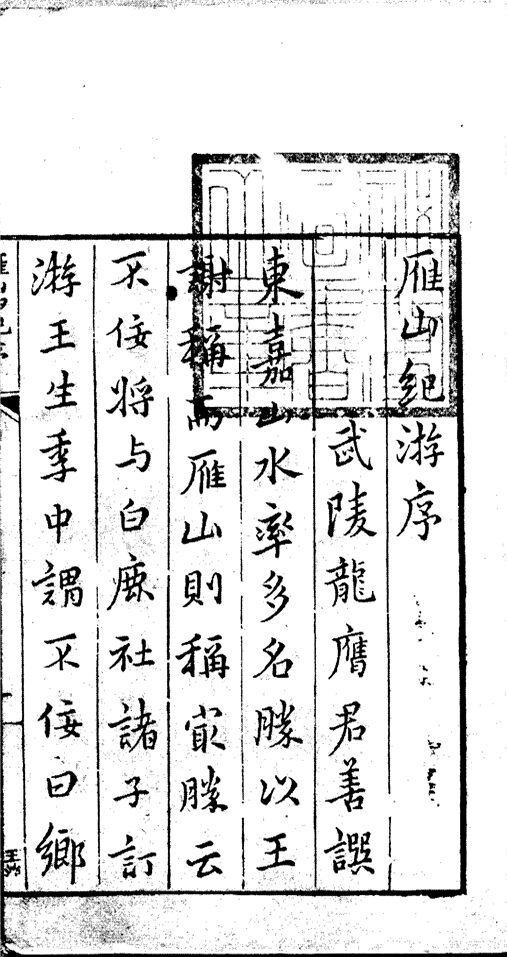 雁山紀游序
武陵龍膺君善譔
東嘉山水率多名勝以王
謝稱而雁山則稱寂勝云
不佞將与白鹿社諸子訂
游王生季中謂不佞曰鄉